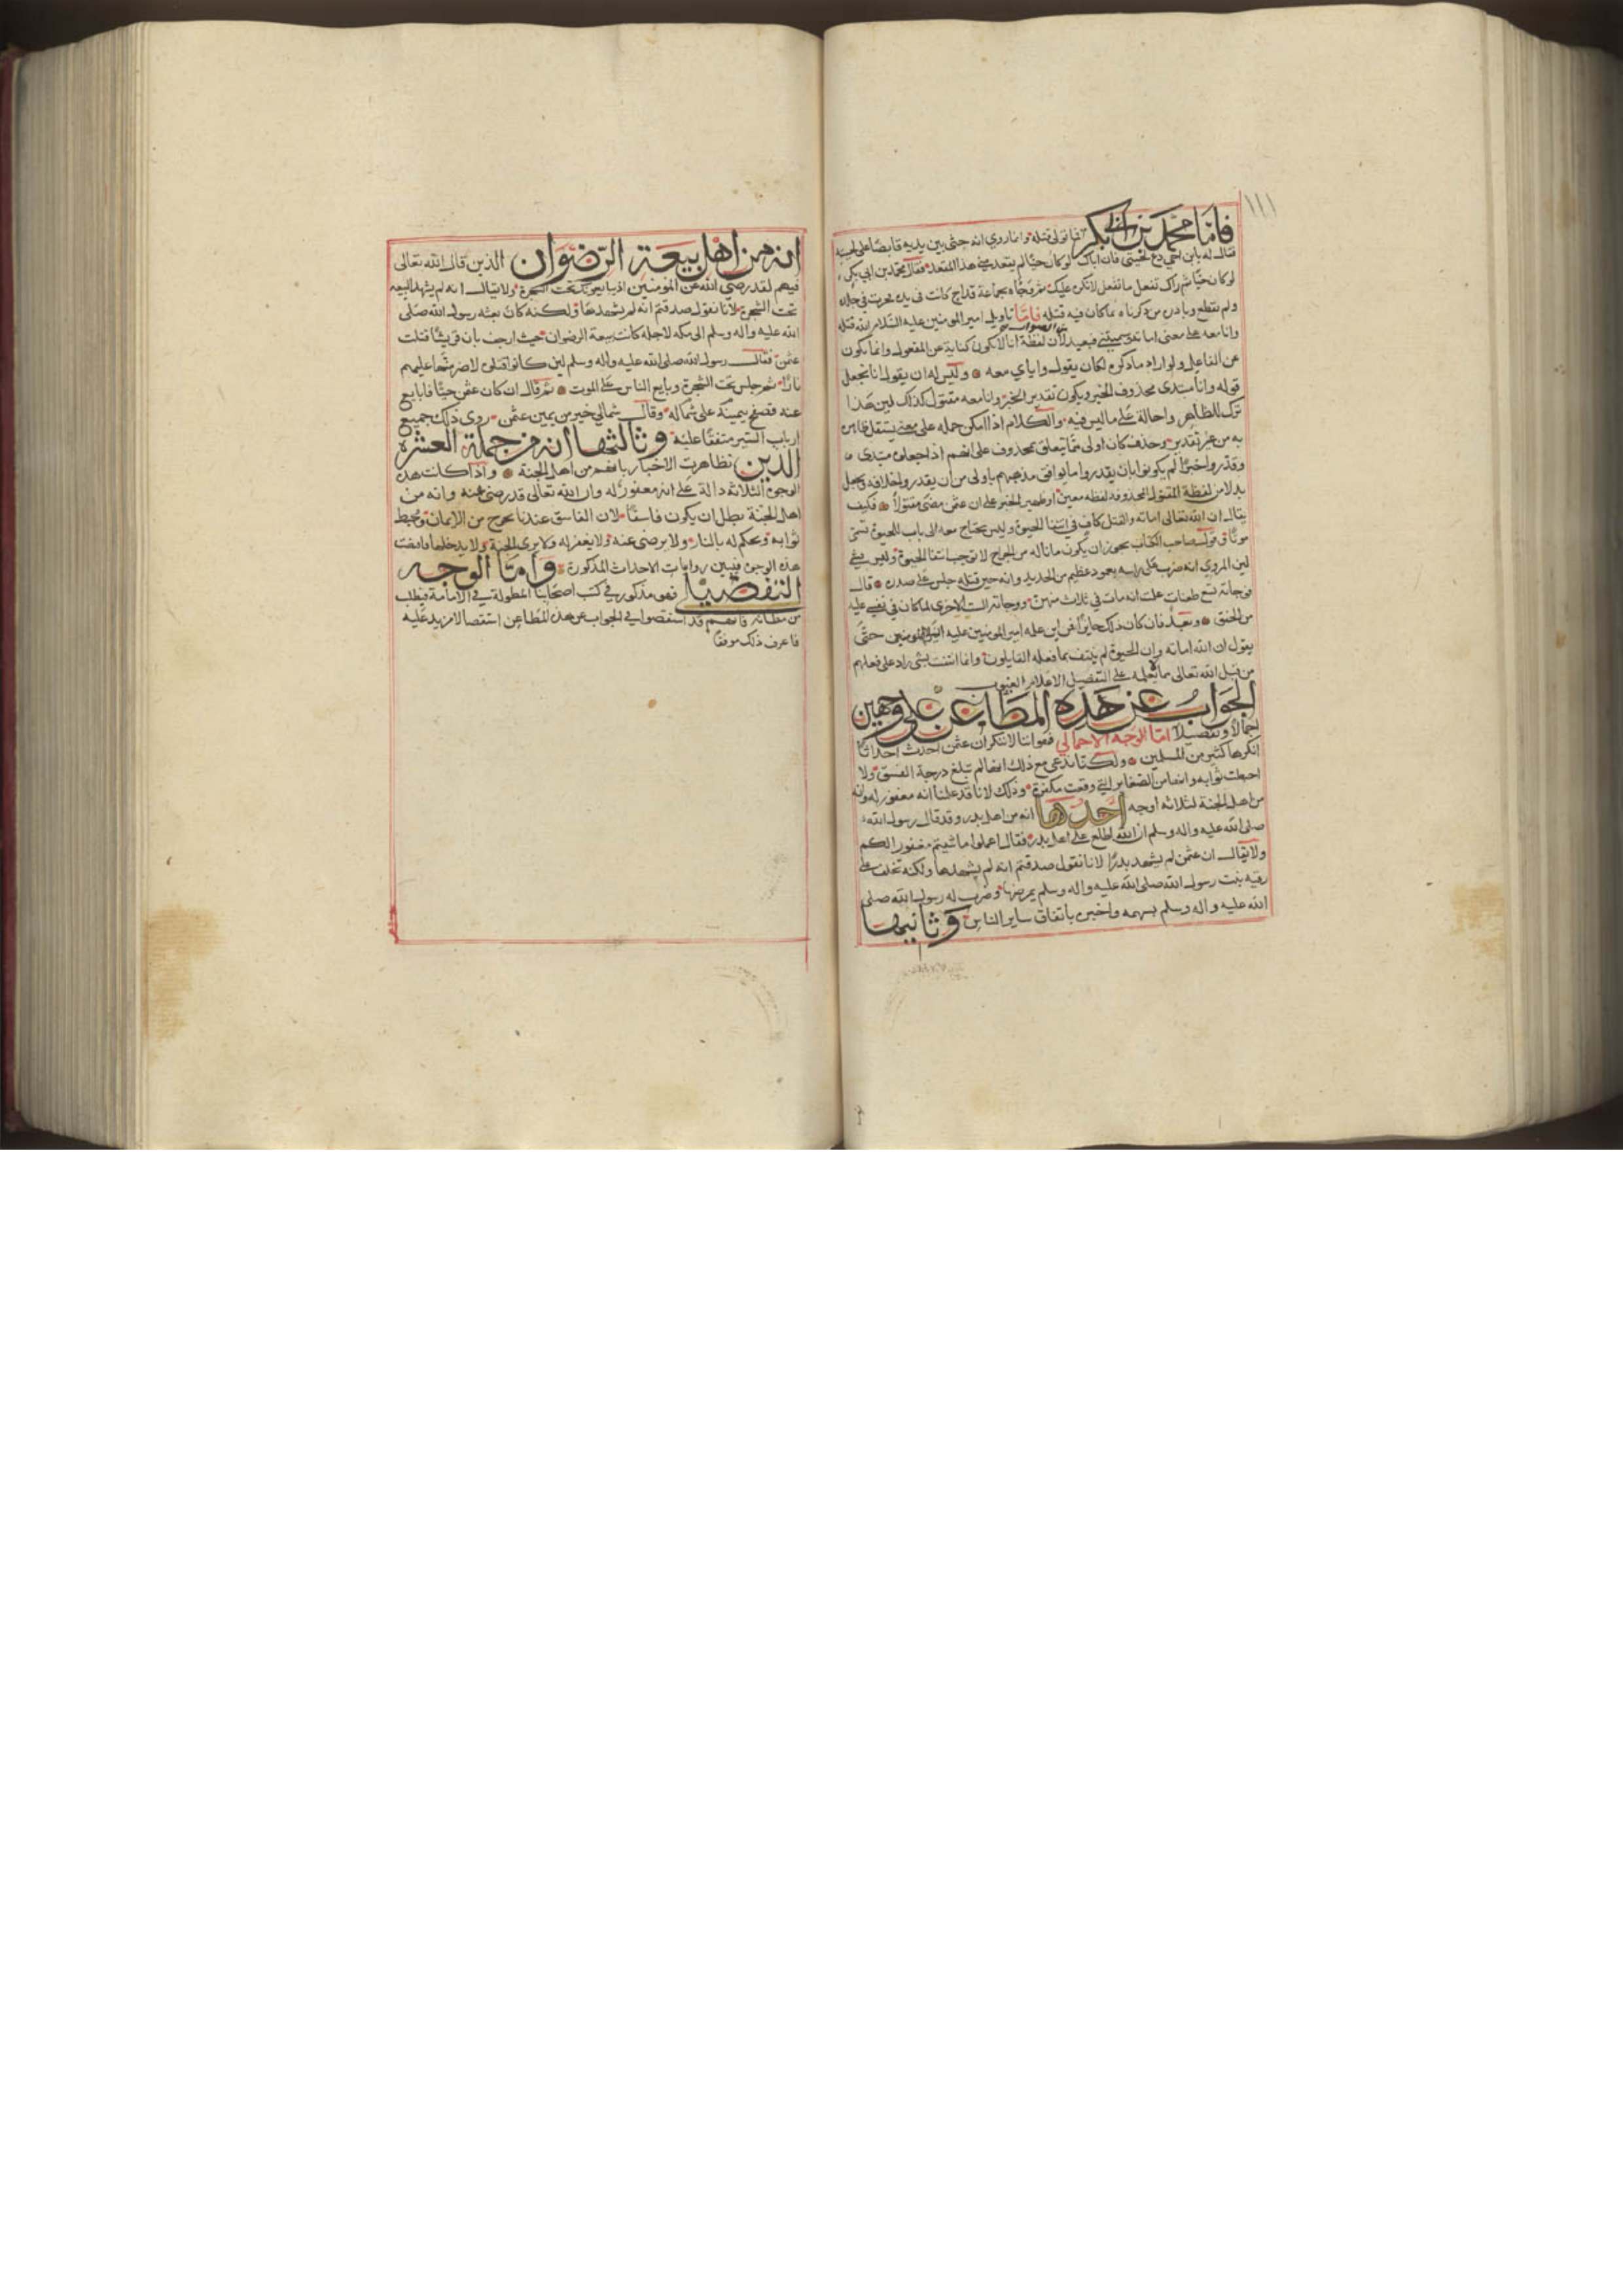 ١١١
فاما محمد بن ابي بكر فما تولى قتله وانما روي انه جثى بين يديه قابضا على لحيته
فقال له يابن اخي دع لحيتي فان اباك لو كان حيا لم يقعد مني هذا المقعد فقال محمد بن ابي بكر
لو كان حيا ثم راك تفعل ما تفعل لانكره عليك ثم وجاه بجماعة قداح كانت في يده فحزت في جلده
ولم تقطع وبادره من ذكرناه بما كان فيه قتله فاما تاويله امير المومنين عليه السلام الله قتله
وانا معه على معنى اماته وسيميتني فبعيد لان لفظة انا لا تكون كناية عن المفعول وانما تكون
عن الفاعل ولو اراد ما ذكره لكان يقول واياي معه وليس له ان يقول انا نجعل
قوله وانا مبتدى محذوف الخبر ويكون تقدير الخبر وانا معه مقتول كذلك لين هذا
ترك للظاهر واحالة على ما ليس فيه والكلام اذا امكن حمله على معنى يستقل ظاهره
به من غير تقدير وحذف كان اولى مما يتعلق بمحذوف على انهم اذا جعلوه مبتدى
وقدروا خبرا لم يكونوا بان يقدروا ما يوافق مذهبهم باولى من ان يقدروا خلافه ويجعل
بدلا من لفظة المقتول المحذوفه لفظه معين او ظهير الخبر على ان عثمن مضى مقتولا فكيف
يقال ان الله تعالى اماته والقتل كاف في انتفا الحيوة وليس يحتاج معه الى باب للحيوة تسمى
موتا قول صاحب الكتاب يجوز ان يكون ما ناله من الجراح لا توجب انتفا الحيوة وليس بشي
لين المروي انه ضرب على راسه بعمود عظيم من الحديد وانه حين قتله جلس على صدره قال
وجاته تسع طعنات علمت انه مات في ثلاث منهن ووجاته الست الاخرى لما كان في نفسي عليه
من الحنق وبعد فان كان ذلك جايزا فمن اين علمه امير المومنين عليه السلام حتى
يقول ان الله اماته وان الحيوة لم ينتف بما فعله القايلون وانما انتفت بشي زاد على فعلهم
من قبل الله تعالى مما لا يعلمه على التفصيل الا علام الغيوب
الجواب عن هذه المطاعن على وجهين
اجمالا وتفصيلا اما الوجه الاجمالي فهو اننا لا ننكر ان عثمن احدث احداثا
انكرها كثير من المسلمين ولكنا ندعي مع ذلك انها لم تبلغ درجة الفسق ولا
احبطت ثوابه وانها من الصغاير التي وقعت مكفرة وذلك لانا قد علمنا انه مغفور له وانه
من اهل الجنة لثلاثه اوجه احدها انه من اهل بدر وقد قال رسول الله
صلى الله عليه واله وسلم ان الله اطلع على اهل بدر فقال اعملوا ما شيتم مغفور الكم
ولا يقال ان عثمن لم يشهد بدرا لانا نقول صدقتم انه لم يشهدها ولكنه تخلف على
رقيه بنت رسول الله صلى الله عليه واله وسلم يمرضها وضرب له رسول الله صلى
الله عليه واله وسلم بسهمه واخبره باتفاق ساير الناس وثانيها
انه من اهل بيعة الرضوان الذين قال الله تعالى
فيهم لقد رضي الله عن المومنين اذ يبايعونك تحت الشجرة ولا يقال انه لم يشهد البيعه
تحت الشجرة لانا نقول صدقتم انه لم يشهدها ولكنه كان بعثه رسول الله صلى
الله عليه واله وسلم الى مكه لاجله كانت بيعة الرضوان حيث ارجف بان قريشا قتلت
عثمن فقال رسول الله صلى الله عليه واله وسلم لين كانوا قتلى لاضرمنها عليهم
نارا ثم جلس تحت الشجرة وبايع الناس على الموت ثم قال ان كان عثمن حيا فابايع
عنه فصفح بيمينه على شماله وقال شمالي خير من يمين عثمن روى ذلك جميع
ارباب السير متفقا عليه وثالثها انه من جملة العشره
الذين تظاهرت الاخبار بانهم من اهل الجنة واذا كانت هذه
الوجوه الثلاثه دالة على انه مغفور له وان الله تعالى قد رضى عنه وانه من
اهل الجنة بطل ان يكون فاسقا لان الفاسق عندنا يخرج من الايمان ويحبط
ثوابه ويحكم له بالنار ولا يرضى عنه ولا يغفر له ولا يرى الجنة ولا يدخلها
هذه الوجوه فيبين روايات الاحداث المذكورة واما الوجه
التفصيلي فهو مذكور في كتب اصحابنا المطولة في الامامة فيطلب
من مظانه فانهم قد استقصوا في الجواب عن هذه المطاعن استقصا لا مزيد عليه
فاعرف ذلك موفقا